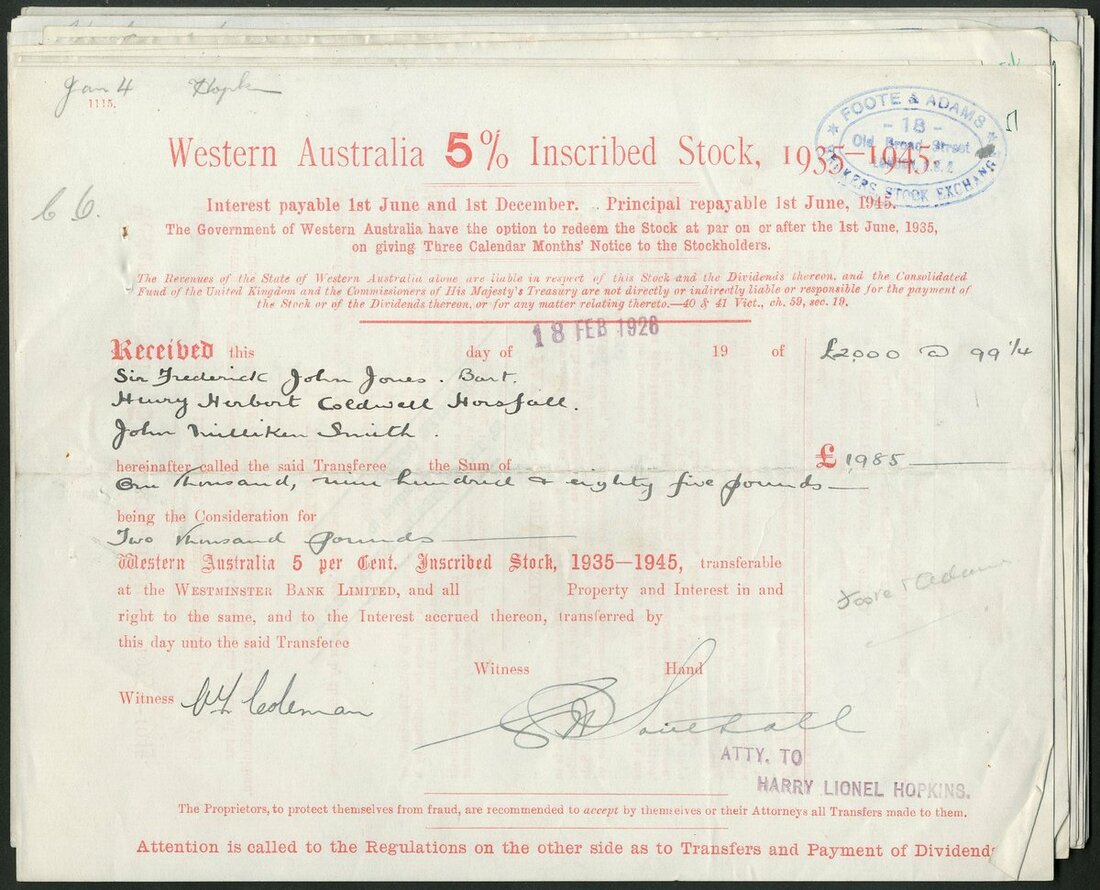 Jan 4 Hopkin
1115.
FOOTE & ADAMS
- 18 -
Old Broad Street
BROKERS STOCK EXCHANGE
Western Australia 5% Inscribed Stock, 1935–1945.
C 6.
Interest payable 1st June and 1st December. Principal repayable 1st June, 1945.
The Government of Western Australia have the option to redeem the Stock at par on or after the 1st June, 1935,
on giving Three Calendar Months' Notice to the Stockholders.
The Revenues of the State of Western Australia alone are liable in respect of this Stock and the Dividends thereon, and the Consolidated
Fund of the United Kingdom and the Commissioners of His Majesty's Treasury are not directly or indirectly liable or responsible for the payment of
the Stock or of the Dividends thereon, or for any matter relating thereto.—40 & 41 Vict., ch. 59, sec. 19.
18 FEB 1926
Received this day of 19 of £2000 @ 99 1/4
Sir Frederick John Jones. Bart.
Henry Herbert Coldwell Horsfall.
John Milliken Smith.
hereinafter called the said Transferee the Sum of £ 1985
One thousand, nine hundred & eighty five pounds
being the Consideration for
Two thousand pounds
Western Australia 5 per Cent. Inscribed Stock, 1935—1945, transferable
at the WESTMINSTER BANK LIMITED, and all Property and Interest in and
Foote & Adams
right to the same, and to the Interest accrued thereon, transferred by
this day unto the said Transferee
Witness Hand
Witness Coleman
Southall
ATTY. TO
HARRY LIONEL HOPKINS.
The Proprietors, to protect themselves from fraud, are recommended to accept by themselves or their Attorneys all Transfers made to them.
Attention is called to the Regulations on the other side as to Transfers and Payment of Dividends